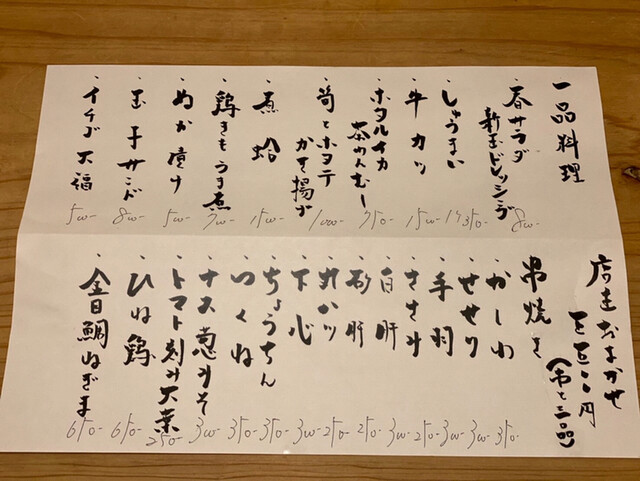 一品料理
・春サラダ
新玉ドレッシング
800-
・しゅうまい
1ヶ350-
・牛カツ
1500-
・ホタルイカ
茶わんむし
750-
・筍とホタテ
かき揚げ
1000-
・煮蛤
1500-
・鶏きもうま煮
700-
・ぬか漬け
500-
・玉子サンド
800-
・イチゴ大福
500-
店主おまかせ
(串と三品)
串焼き
・かしわ
350-
・せせり
300-
・手羽
300-
・ささみ
250-
・白肝
300-
・砂肝
250-
・丸ハツ
250-
・下心
300-
・ちょうちん
350-
・つくね
350-
・ナス葱みそ
300-
・トマト刻み大葉
250-
・ひね鶏
650-
・金目鯛ねぎま
650-